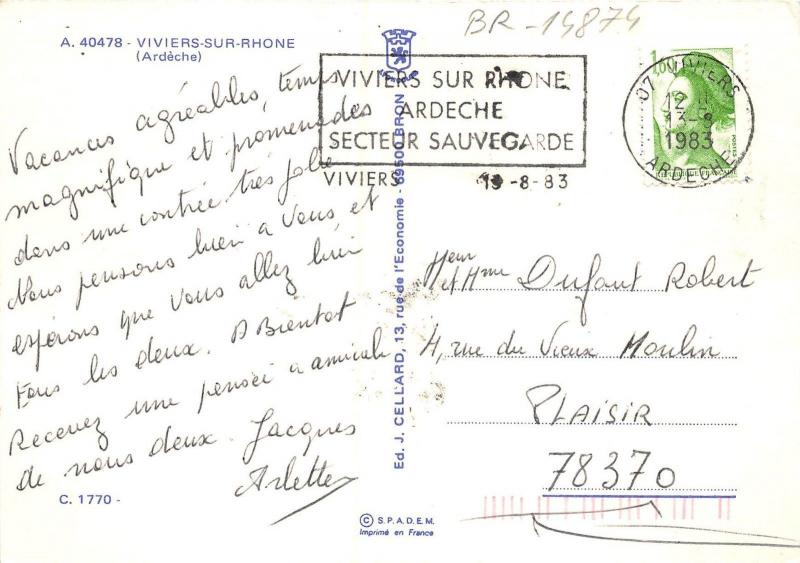 BR-14874
A. 40478 - VIVIERS-SUR-RHONE
(Ardèche)
VIVIERS SUR RHONE
ARDECHE
SECTEUR SAUVEGARDE
VIVIERS 13-8-83
1,60
07 VIVIERS
12 H
13-8
1983
ARDECHE
POSTES
REPUBLIQUE FRANÇAISE
Vacances agréables, temps
magnifique et promenades
dans une contrée très jolie
Nous pensons bien à vous, et
espérons que vous allez bien
Tous les deux. A Bientot
Recevez une pensée amicale
de nous deux. Jacques
Arlette
C. 1770 -
Ed. J. CELLARD, 13, rue de l'Economie - 69500 BRON
Meur
et Mme Dufant Robert
4, rue du Vieux Moulin
PLAISIR
78370
© S.P.A.D.E.M.
Imprimé en France